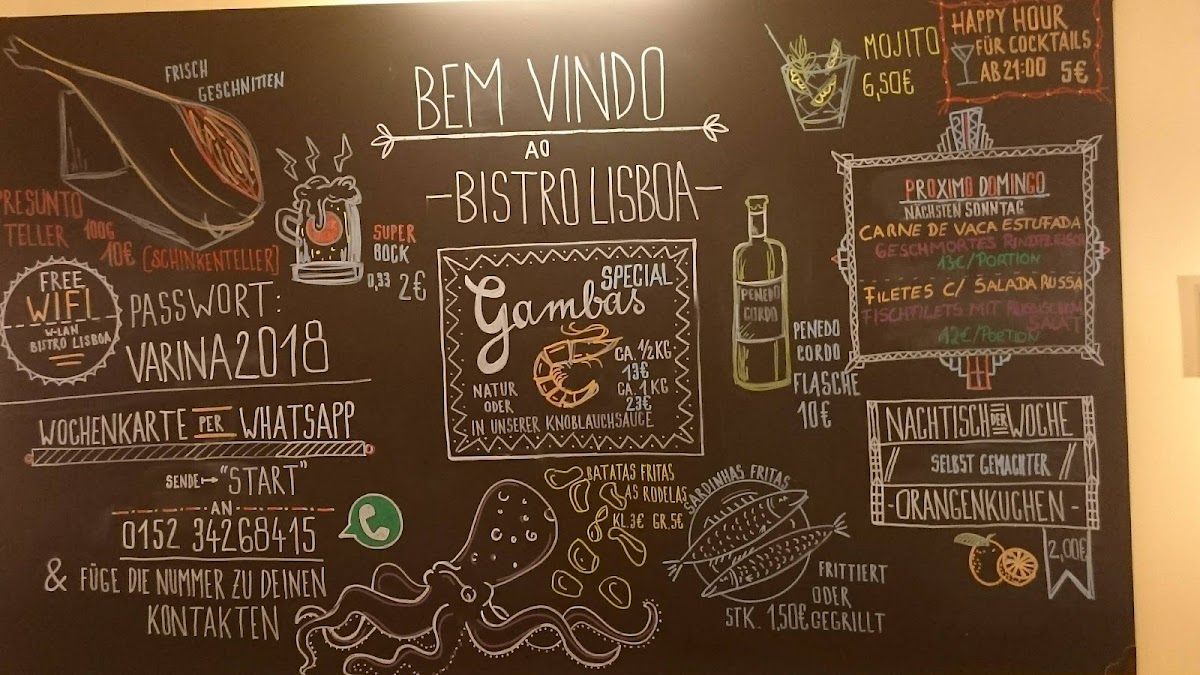 FRISCH
GESCHNITTEN
PRESUNTO
TELLER 100G
10€ [SCHINKENTELLER]
SUPER
BOCK
0,33 2€
FREE
WIFI
W-LAN
BISTRO LISBOA
PASSWORT:
VARINA2018
WOCHENKARTE PER WHATSAPP
SENDE "START"
AN
0152 34268415
& FÜGE DIE NUMMER ZU DEINEN
KONTAKTEN
BEM VINDO
AO
-BISTRO LISBOA-
SPECIAL
Gambas
CA. ½ KG
13€
CA. 1 KG
23€
NATUR
ODER
IN UNSERER KNOBLAUCHSAUCE
BATATAS FRITAS
ÀS RODELAS
KL.3€ GR.5€
SARDINHAS FRITAS
FRITTIERT
ODER
STK. 1,50€ GEGRILLT
PENEDO
CORDO
PENEDO
CORDO
FLASCHE
10€
MOJITO
6,50€
HAPPY HOUR
FÜR COCKTAILS
AB 21:00 5€
PROXIMO DOMINGO
NÄCHSTEN SONNTAG
CARNE DE VACA ESTUFADA
GESCHMORTES RINDFLEISCH
13€/PORTION
FILETES C/ SALADA RUSSA
FISCHFILETS MIT RUSSISCHEM
SALAT
12€/PORTION
NACHTISCH DER WOCHE
SELBST GEMACHTER
-ORANGENKUCHEN-
2,00€